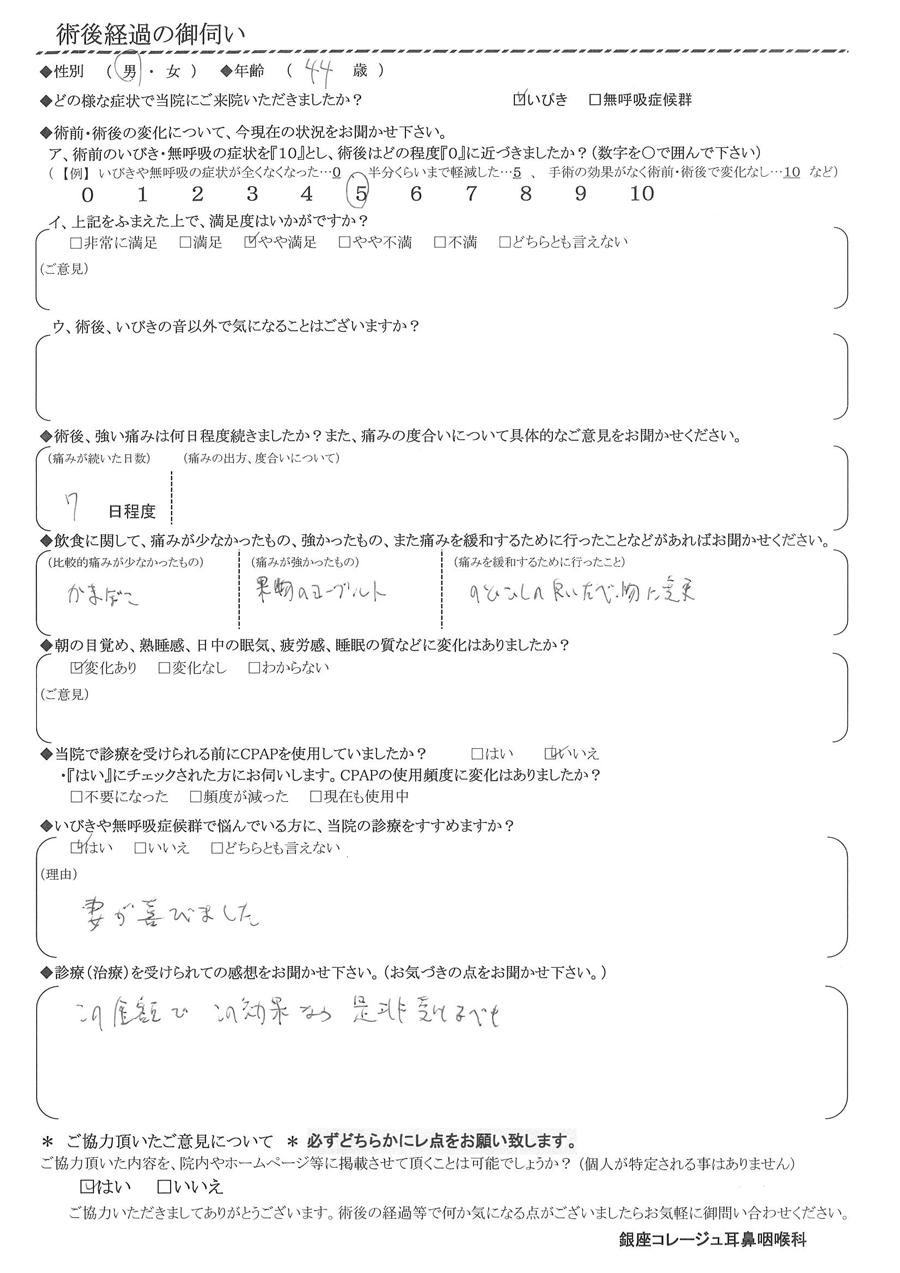 術後経過の御伺い
◆性別 （ 男 ・ 女 ） ◆年齢 （ 44 歳 ）
◆どの様な症状で当院にご来院いただきましたか？ ☑いびき □無呼吸症候群
◆術前・術後の変化について、今現在の状況をお聞かせ下さい。
ア、術前のいびき・無呼吸の症状を『10』とし、術後はどの程度『0』に近づきましたか？（数字を〇で囲んで下さい）
（ 【例】 いびきや無呼吸の症状が全くなくなった…0 半分くらいまで軽減した…5 、 手術の効果がなく術前・術後で変化なし…10 など）
0 1 2 3 4 5 6 7 8 9 10
イ、上記をふまえた上で、満足度はいかがですか？
□非常に満足 □満足 ☑やや満足 □やや不満 □不満 □どちらとも言えない
（ご意見）
ウ、術後、いびきの音以外で気になることはございますか？
◆術後、強い痛みは何日程度続きましたか？また、痛みの度合いについて具体的なご意見をお聞かせください。
（痛みが続いた日数） （痛みの出方、度合いについて）
7 日程度
◆飲食に関して、痛みが少なかったもの、強かったもの、また痛みを緩和するために行ったことなどがあればお聞かせください。
（比較的痛みが少なかったもの） （痛みが強かったもの） （痛みを緩和するために行ったこと）
かまぼこ 果物のヨーグルト のどごしの良いたべ物に変更
◆朝の目覚め、熟睡感、日中の眠気、疲労感、睡眠の質などに変化はありましたか？
☑変化あり □変化なし □わからない
（ご意見）
◆当院で診療を受けられる前にCPAPを使用していましたか？ □はい ☑いいえ
・『はい』にチェックされた方にお伺いします。CPAPの使用頻度に変化はありましたか？
□不要になった □頻度が減った □現在も使用中
◆いびきや無呼吸症候群で悩んでいる方に、当院の診療をすすめますか？
☑はい □いいえ □どちらとも言えない
（理由）
妻が喜びました
◆診療（治療）を受けられての感想をお聞かせ下さい。（お気づきの点をお聞かせ下さい。）
この金額で この効果なら 是非受けるべき
＊ ご協力頂いたご意見について ＊ 必ずどちらかにレ点をお願い致します。
ご協力頂いた内容を、院内やホームページ等に掲載させて頂くことは可能でしょうか？（個人が特定される事はありません）
☑はい □いいえ
ご協力いただきましてありがとうございます。術後の経過等で何か気になる点がございましたらお気軽に御問い合わせください。
銀座コレージュ耳鼻咽喉科